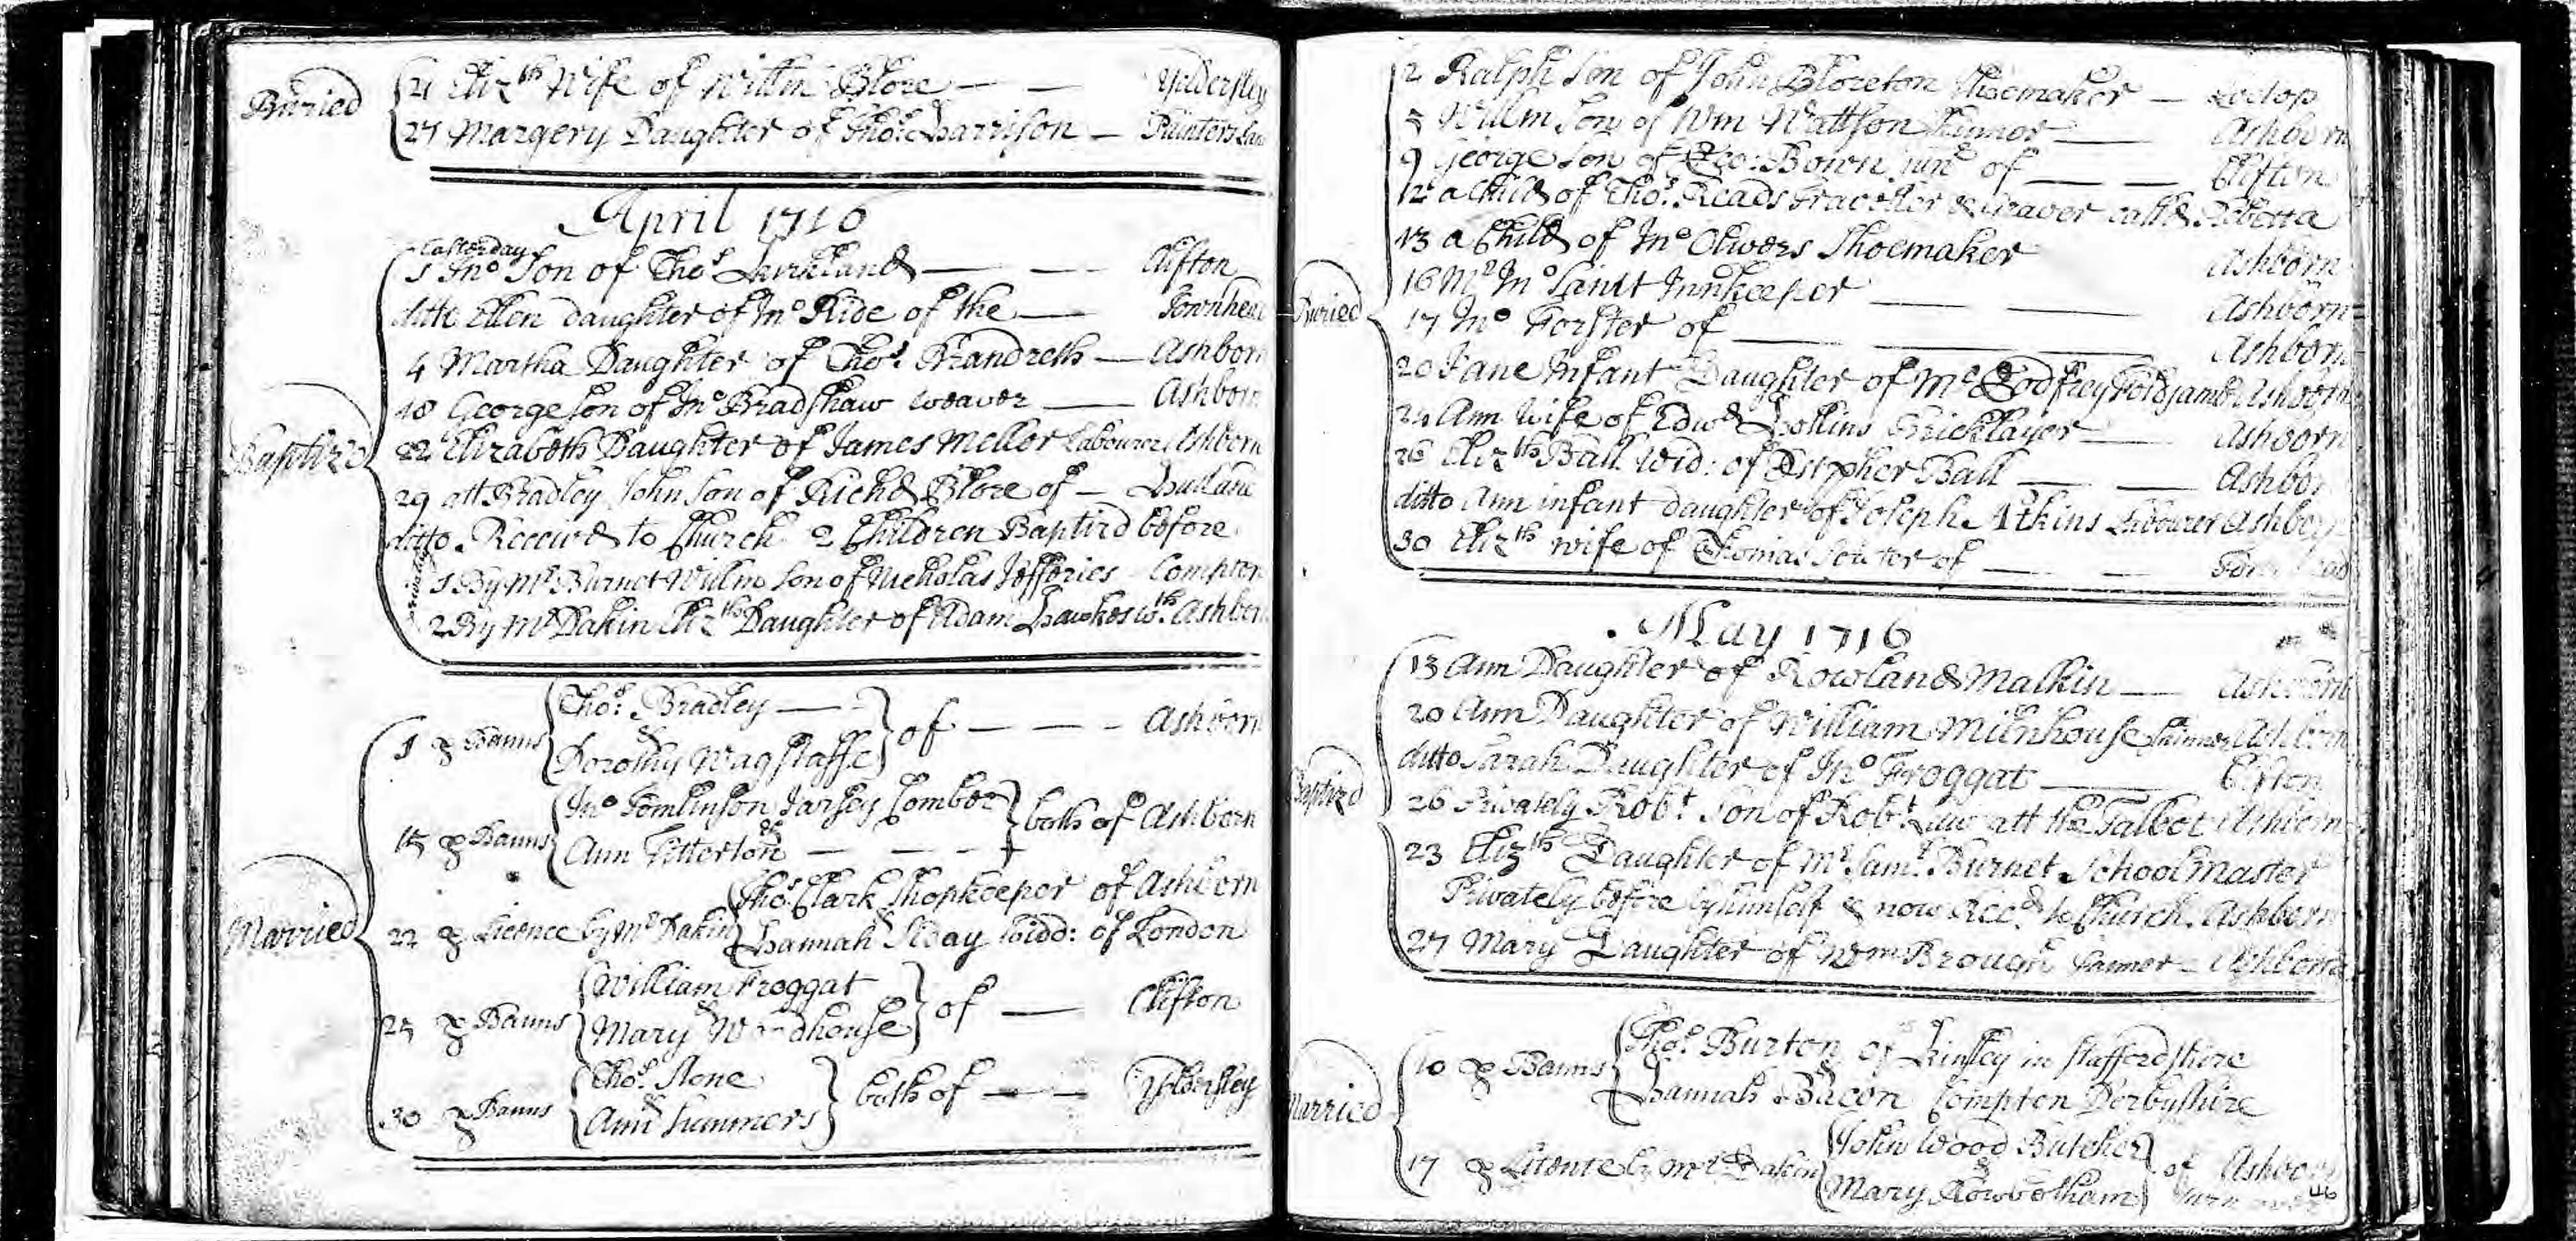 Buried
21 Eliz:th Wife of Willm Blore — — Yeldersley
27 Margery Daughter of Tho:s Harrison —
April 1716
Easterday
Baptizd
1 Jno Son of Tho:s Kirkland — — Clifton
ditto Ellen daughter of Jno Ride of the — Townhead
4 Martha Daughter of Tho:s Brandreth — Ashborn
18 George son of Jno Bradshaw weaver — Ashborn
22 Elizabeth Daughter of James Mellor Labourer Ashborn
29 att Bradley John Son of Richd Blore of — Hulland
ditto Receivd to Church 2 Children Baptizd before
privately
1 By Mr Burnet Willm Son of Nicholas Jefferies Compton
2 By Mr Dakin Eliz:th Daughter of Adam Hawkesw:th Ashborn
Married
1 p Banns Tho:s Bradley —
& Dorothy Wagstaffe of — — — Ashborn
15 p Banns Jno Tomlinson Jarsey Comber
& Ann Titterton — — — both of Ashborn
22 p Licence by Mr Dakin Tho:s Clark Shopkeeper of Ashborn
& Hannah Aday Widd: of London
25 p Banns William Froggat
& Mary Woodhouse of — Clifton
30 p Banns Tho:s Stone
& Ann Summers both of — — Yeldersley
Buried
2 Ralph Son of John Bloreton Shoemaker —
5 Willm Son of Wm Wattson — Ashborn
9 George Son of Geo: Bown junr of — — Clifton
12 a Child of Tho:s Reads Traveller & Weaver calld
13 a Child of Jno Olivers Shoemaker Ashborn
16 Mr Jno Innkeeper — — Ashborn
17 Jno Forster of — — Ashborn
20 Jane Infant Daughter of Mr Godfrey Foldjamb Ashborn
24 Ann Wife of Edwd Hollins Bricklayer — Ashborn
26 Eliz:th Ball Wid: of Xstopher Ball — — Ashborn
ditto Ann infant daughter of Joseph Atkins Labourer Ashborn
30 Eliz:th wife of Thomas Souter of — —
May 1716
Baptizd
13 Ann Daughter of Rowland Malkin — Ashborn
20 Ann Daughter of William Milnhouse Skinner Ashborn
ditto Sarah Daughter of Jno Froggat — Clifton
26 Privately Robt Son of Robt Law att the Talbot Ashborn
23 Eliz:th Daughter of Mr Sam:l Burnet Schoolmaster
Privately before by himself & now Recd to Church. Ashborn
27 Mary Daughter of Wm Brough Tanner — Ashborn
Married
10 p Banns Tho:s Burton of Kinsley in Staffordshire
& Hannah Bacon Compton Derbyshire
17 p Licence by Mr Dakin John Wood Butcher
& Mary Rowbotham of Ashborn
Turn over